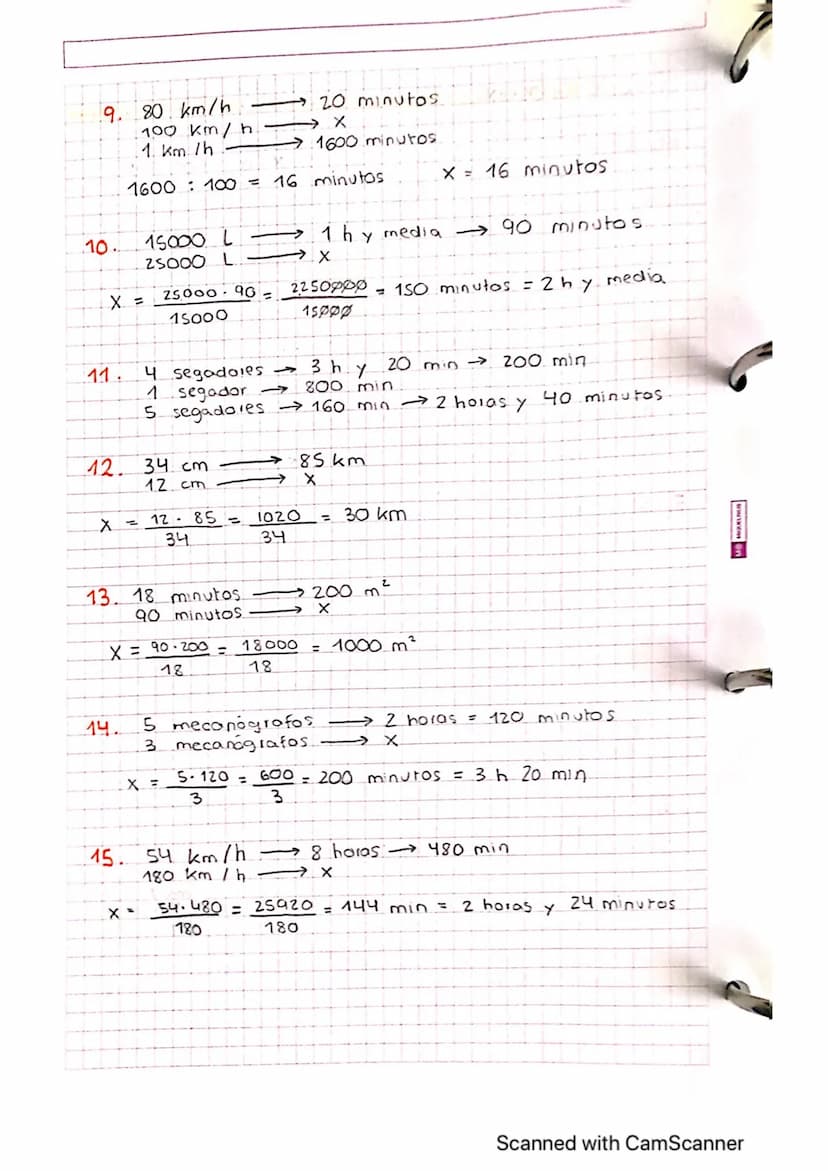 9. 80 km/h → 20 minutos
100 km/h → x
1 km/h → 1600 minutos
1600 : 100 = 16 minutos x = 16 minutos
10. 15000 L → 1 h y media → 90 minutos
25000 L → x
x = 25000 · 90 / 15000 = 2250000 / 15000 = 150 minutos = 2 h y media
11. 4 segadores → 3 h y 20 min → 200 min
1 segador → 800 min
5 segadores → 160 min → 2 horas y 40 minutos
12. 34 cm → 85 km
12 cm → x
x = 12 · 85 / 34 = 1020 / 34 = 30 km
13. 18 minutos → 200 m²
90 minutos → x
x = 90 · 200 / 18 = 18000 / 18 = 1000 m²
14. 5 mecanógrafos → 2 horas = 120 minutos
3 mecanógrafos → x
x = 5 · 120 / 3 = 600 / 3 = 200 minutos = 3 h 20 min
15. 54 km/h → 8 horas → 480 min
180 km/h → x
x = 54 · 480 / 180 = 25920 / 180 = 144 min = 2 horas y 24 minutos
Scanned with CamScanner